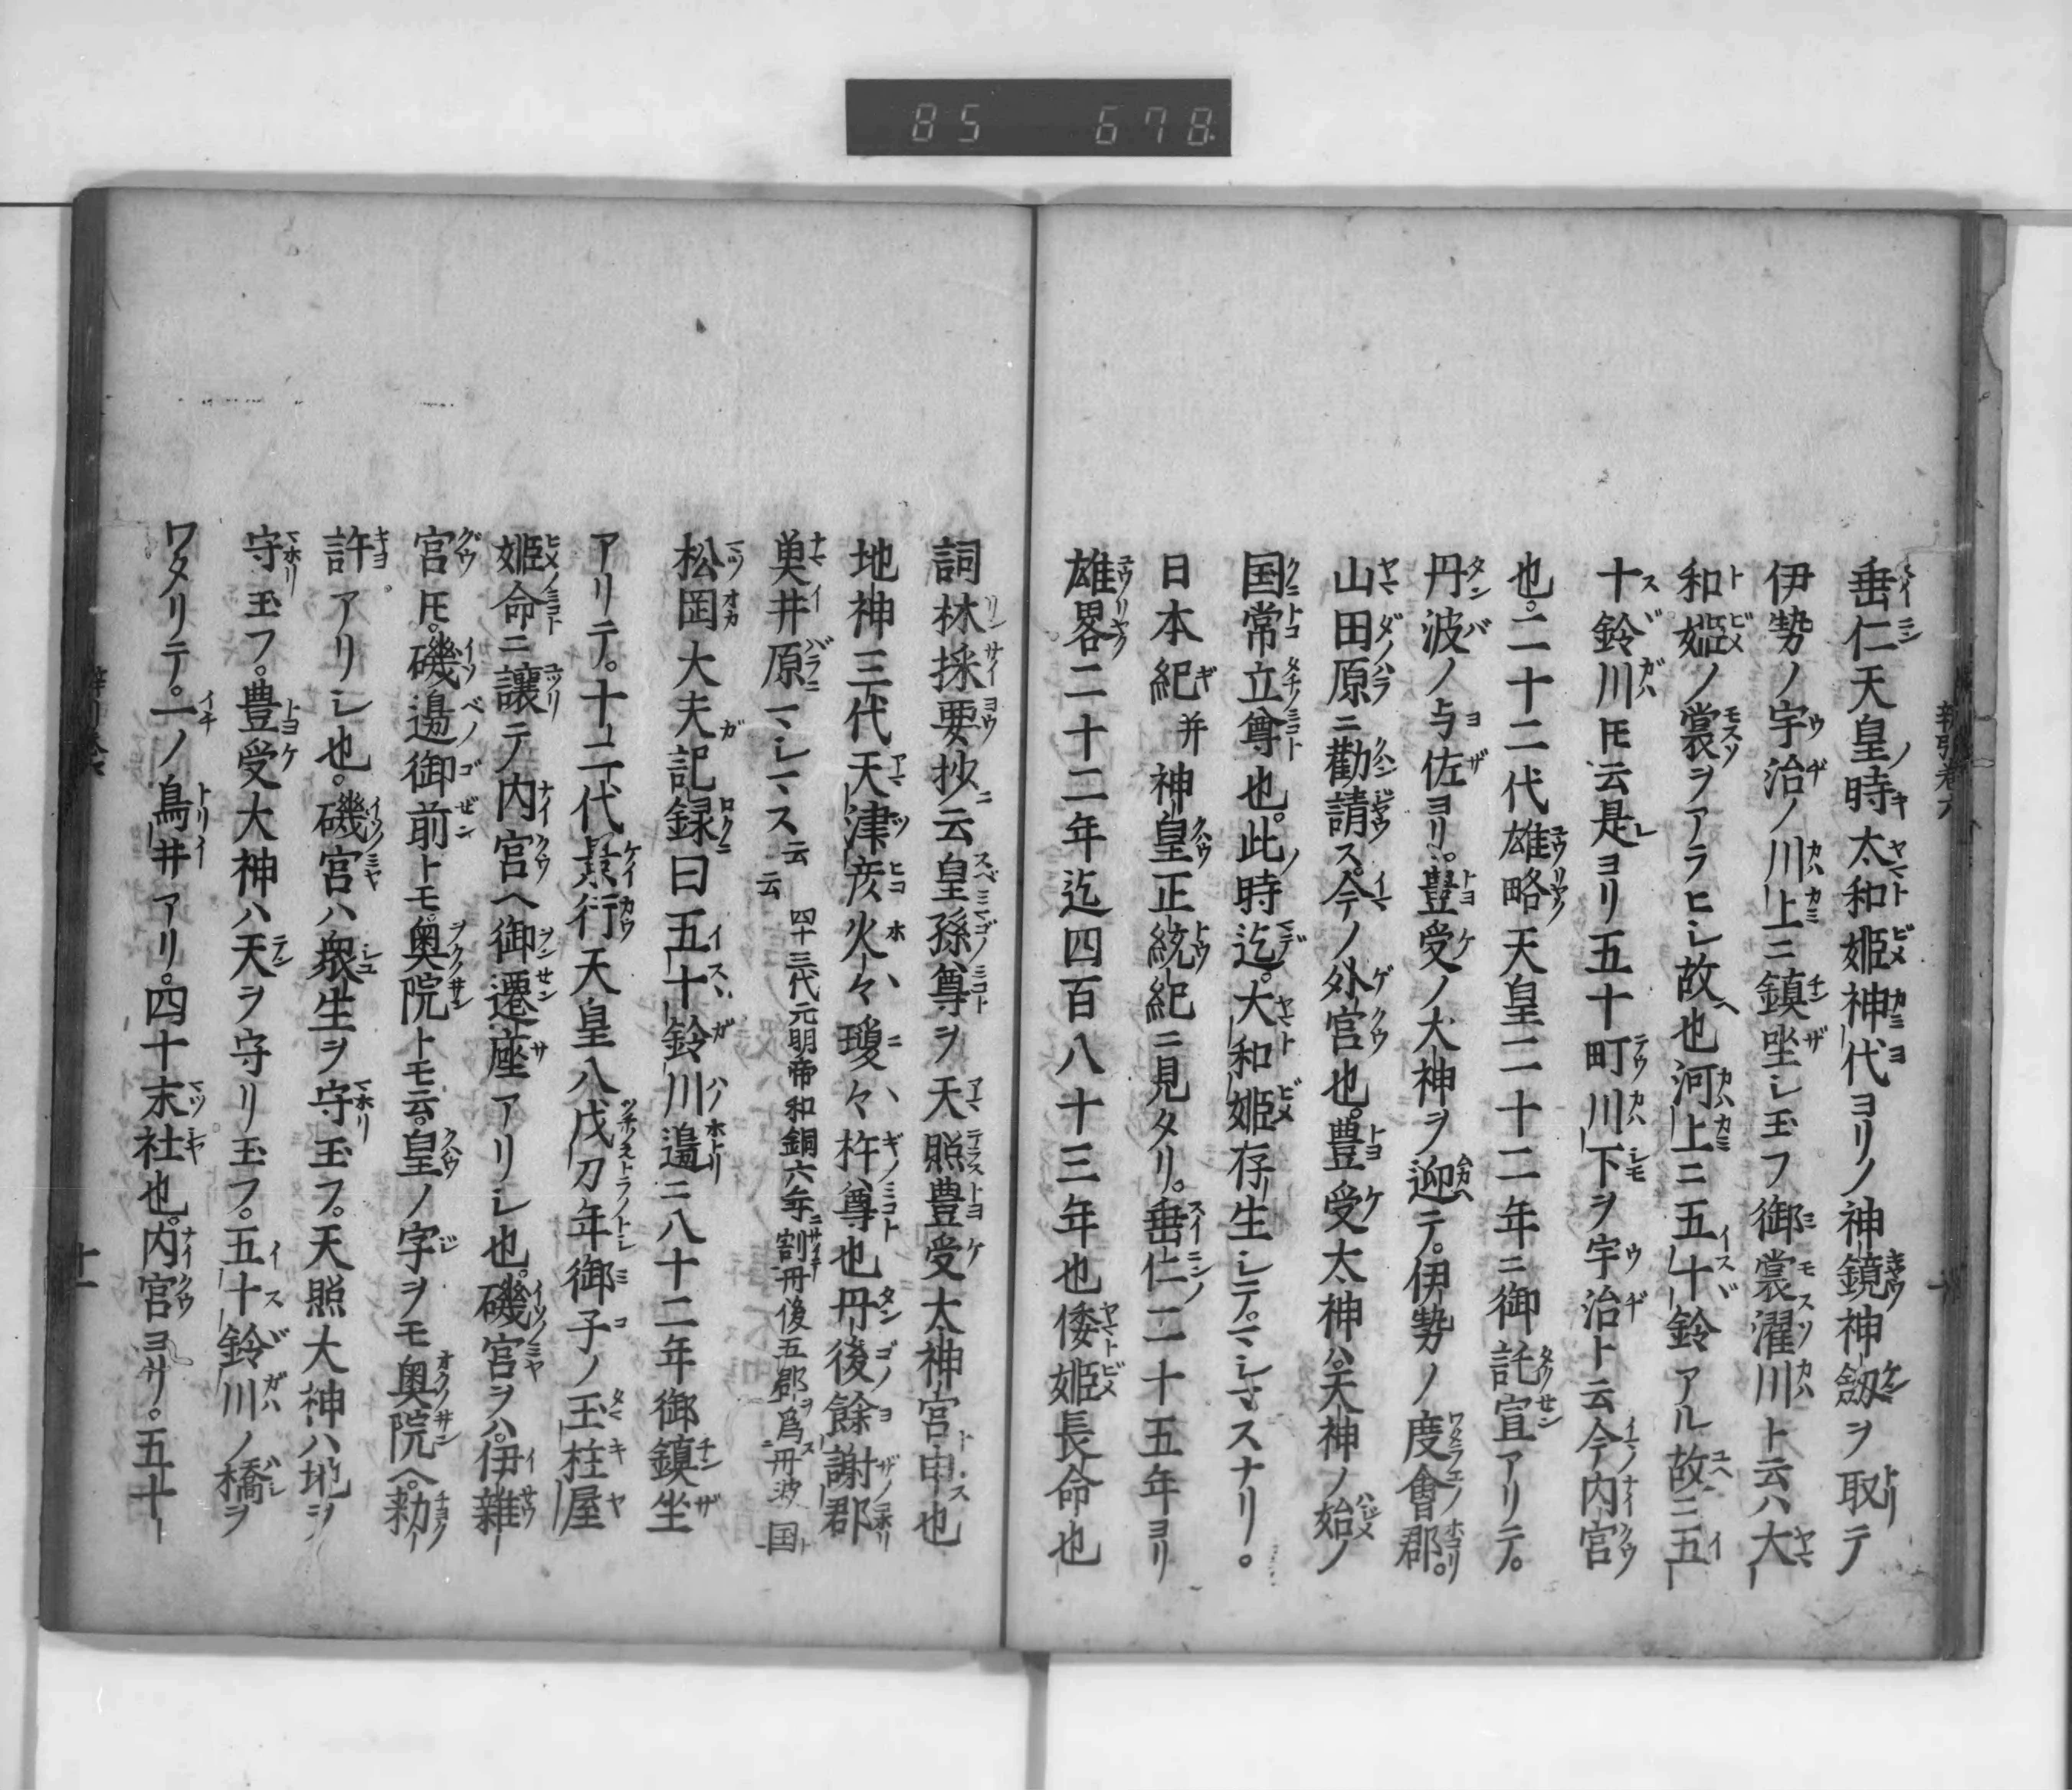 85 678
垂仁天皇ノ時太和姫神代ヨリノ神鏡神劔ヲ取テ
伊勢ノ宇治ノ川上ニ鎮坐シ玉フ御裳濯川ト云ハ大
和姫ノ裳ヲアラヒシ故也河上ニ五十鈴アル故ニ五
十鈴川トモ云是ヨリ五十町川下ヲ宇治ト云今内宮
也。二十二代雄略天皇二十二年ニ御託宣アリテ。
丹波ノ与佐ヨリ。豊受ノ大神ヲ迎テ。伊勢ノ度會郡。
山田原ニ勸請ス。今ノ外宮也。豊受太神ハ。天神ノ始ノ
国常立尊也。此時迄。大和姫存生シテ。マシマスナリ。
日本紀并神皇正統紀ニ見タリ。垂仁二十五年ヨリ
雄畧二十二年迄四百八十三年也倭姫長命也
詞林採要抄云皇孫尊ヲ天照豊受太神宮申也
地神三代天津彦火々瓊々杵尊也丹後餘謝郡
奠井原ニマシマス云云 四十三代元明帝和銅六年割丹後五郡爲丹波国
松岡大夫記録曰五十鈴川邉ニ八十二年御鎮坐
アリテ。十二代景行天皇八戊刀年御子ノ玉柱屋
姫命ニ讓テ内宮ヘ御遷座アリシ也。磯宮ヲハ。伊雜
宮トモ。磯邉御前トモ。奥院トモ云。皇ノ字ヲモ奥院ヘ。勅
許アリシ也。磯宮ハ衆生ヲ守玉フ。天照大神ハ地ヲ
守玉フ。豊受大神ハ天ヲ守リ玉フ。五十鈴川ノ橋ヲ
ワタリテ。一ノ鳥井アリ。四十末社也。内宮ヨリ。五十
十一